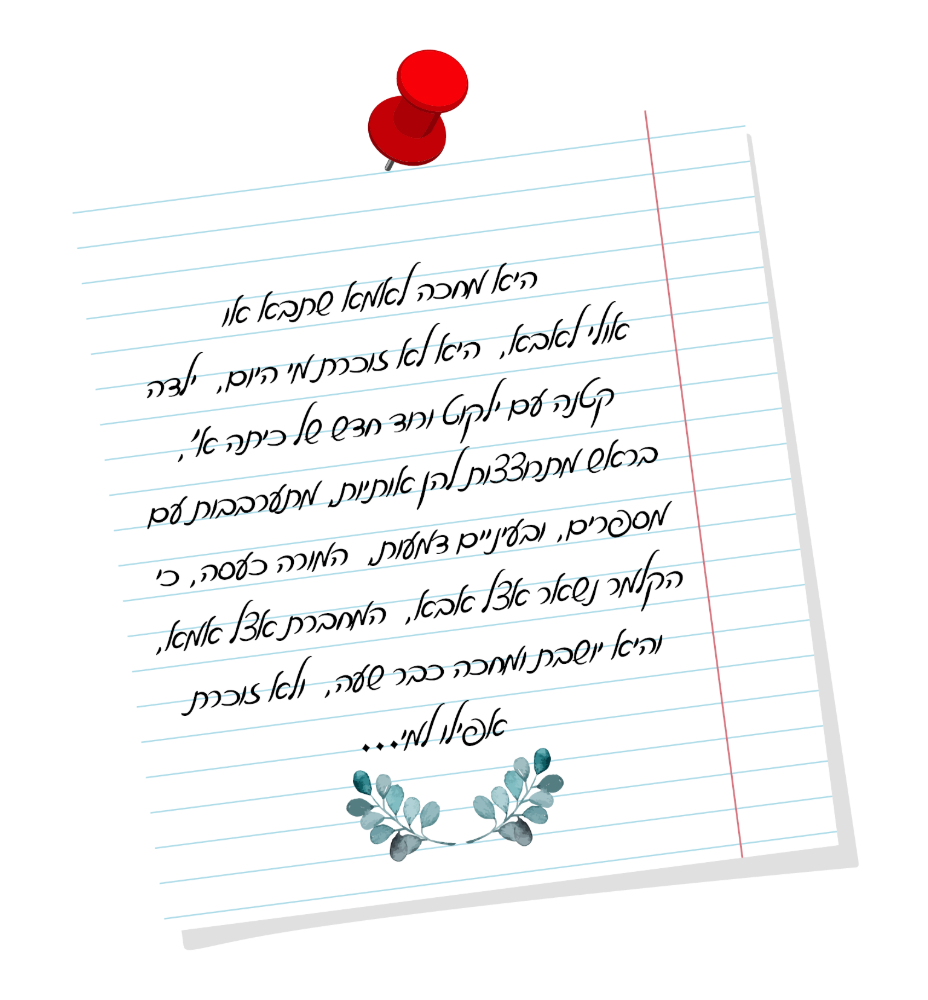 היא מחכה לאמא שתבא או
אולי לאבא, היא לא זוכרת מי היום, ילדה
קטנה עם ילקוט ורוד חדש של כיתה א',
בראש מתרוצצות להן אותיות, מתערבבות עם
מספרים, ובעיניים דמעות, המורה כעסה, כי
הקלמר נשאר אצל אבא, המחברת אצל אמא,
והיא יושבת ומחכה כבר שעה, ולא זוכרת
אפילו למי...